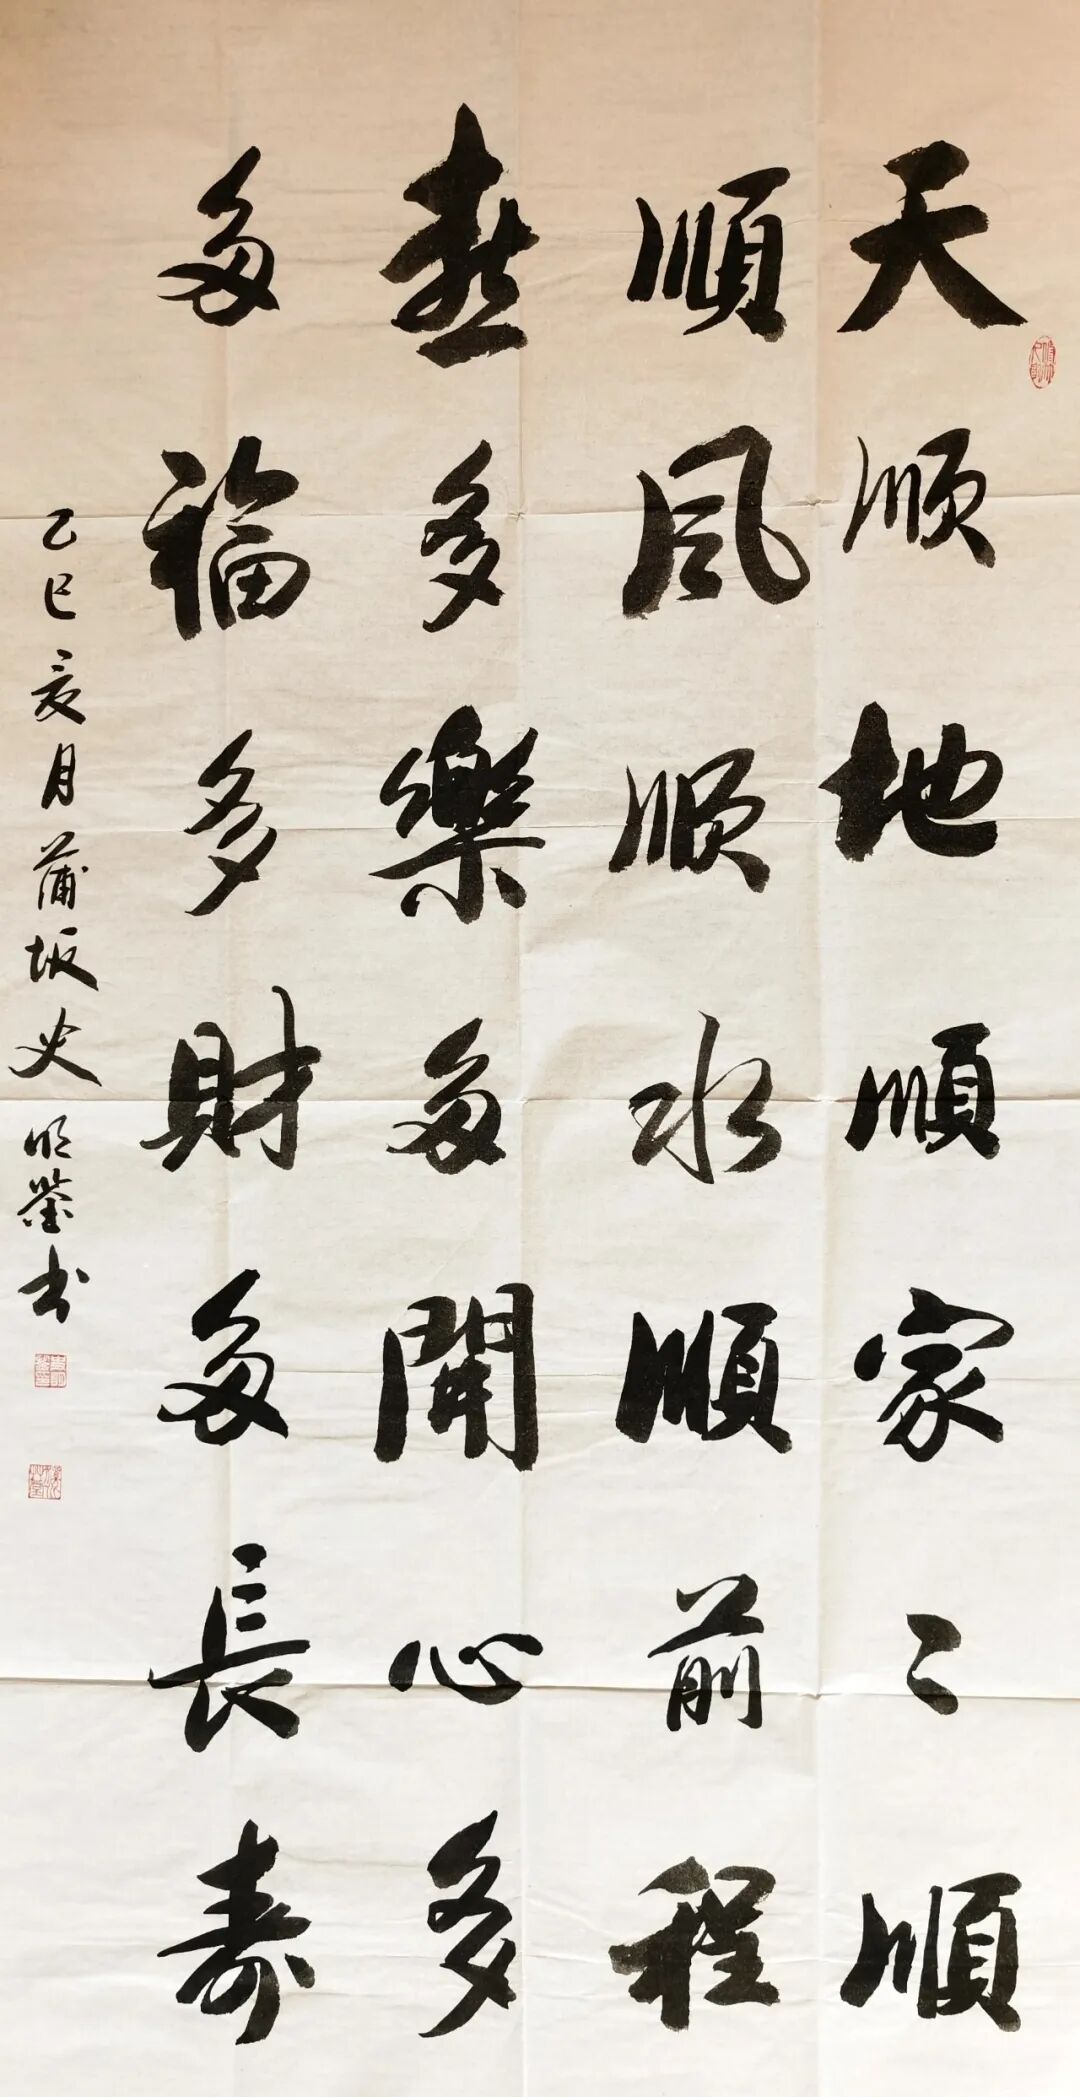 天顺地順家〻順
順風顺水順前程
喜多樂多開心多
多福多財多長壽
乙巳亥月蒲坂史明鉴书